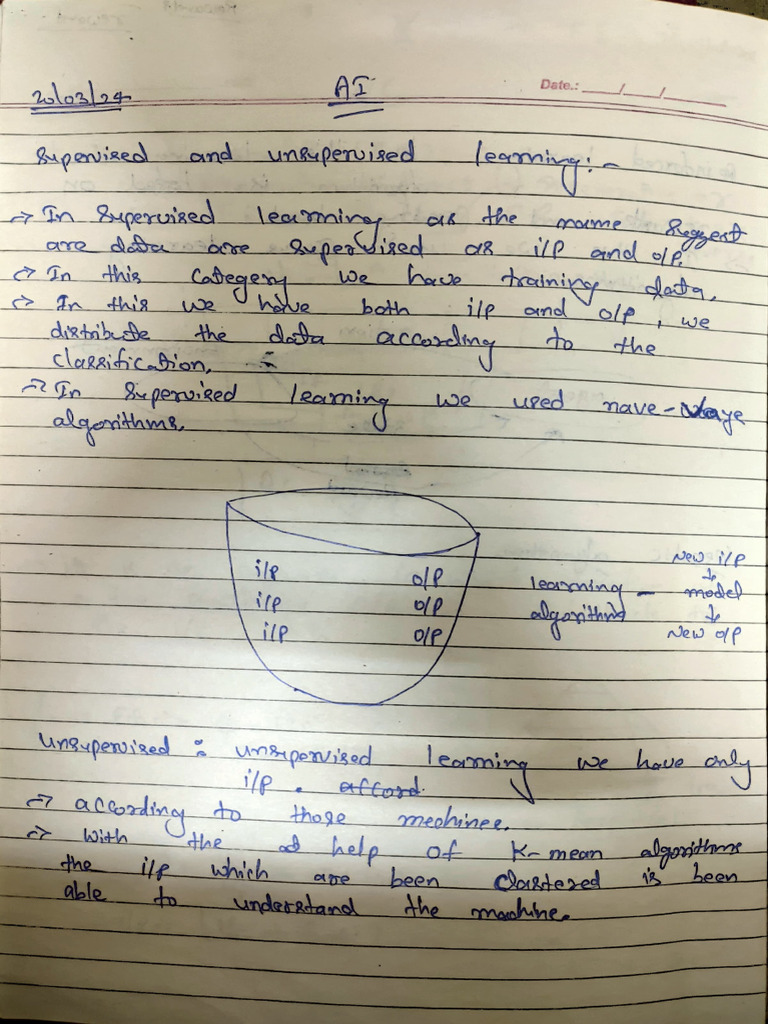 20/03/24
AI
Date.: ___/___/______
Supervised and unsupervised learning:-
→ In Supervised learning as the name Suggest
are data are supervised as i/p and o/p.
→ In this categery we have training data.
→ In this we have both i/p and o/p, we
distribute the data according to the
classification.
→ In Supervised learning we used nave-vaye
algorithms.
i/p o/p
i/p o/p
i/p o/p
learning -
algorithms
New i/p
↓
model
↓
New o/p
Unsupervised : unsupervised learning we have only
i/p . afford.
→ according to those mechines.
→ With the help of K-mean algorithms
the i/p which are been clastered is been
able to understand the machine.